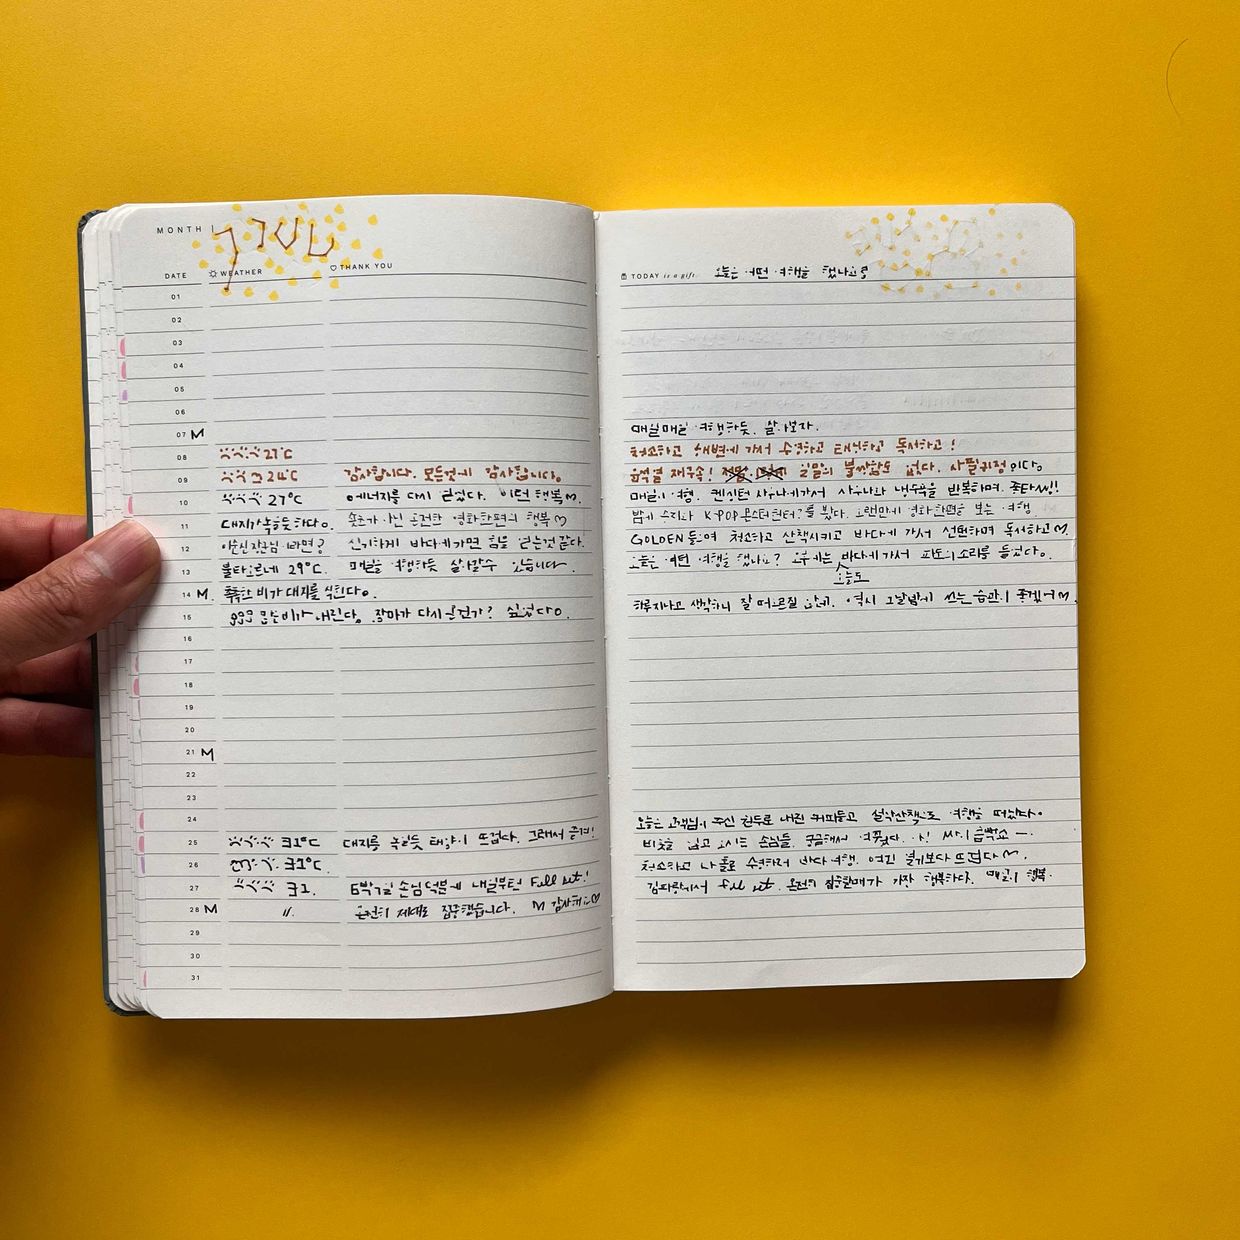 MONTH
DATE WEATHER THANK YOU
01
02
03
04
05
06
07 M
08 27°C
09 24°C 감사합니다. 모든것에 감사합니다.
10 27°C 에너지를 다시 얻었다. 이런 행복
11 대지가 녹을듯하다. 숏츠가 아닌 온전한 영화한편의 행복
12 이순신장군님 이라면? 신기하게 바다에가면 힘을 얻는것 같다.
13 불타오르네 29°C. 매일을 여행하듯 살아갈수 있습니다
14 M 촉촉한 비가 대지를 식힌다.
15 비가 내린다. 장마가 다시 온건가? 싶었다.
16
17
18
19
20
21 M
22
23
24
25 31°C 대지를 녹일듯 태양이 뜨겁다. 그래서
26 31°C
27 31. 6박7일 손님덕분에 내일부턴 Full set!
28 M 〃 온전히 제대로 집중했습니다. 감사해
29
30
31
TODAY is a gift. 오늘은 어떤 여행을 했나요?
매일매일 여행하듯. 살아보자.
청소하고 해변에 가서 수영하고 태닝하고 독서하고!
음식물 재구속! 일말의 불쌍함도 없다. 사필귀정이다.
매일이 여행. 켄싱턴 사우나에가서 사우나와 냉수욕을 반복하며. 좋다!!
밤에 수리와 K POP 몬스터헌터?를 봤다. 오랜만에 영화한편을 보는 여행
GOLDEN 들으며 청소하고 산책시키고 바다에 가서 선텐하며 독서하고
오늘은 어떤 여행을 했나요? 오후에는 바다에 가서 파도의 소리를 들었다.
오늘도
하루지나고 생각하니 잘 떠오르질 않네. 역시 그날밤에 쓰는 습관이 좋겠어
오늘은 고객님이 주신 원두로 내린 커피들고 설악산책으로 여행을 떠났다.
비웃을 입고 오시는 손님들. 궁금해서 여쭸다.
청소하고 나홀로 수영하러 바다여행. 여긴 불가보다 뜨겁다
full set. 온전히 집중할때가 가장 행복하다. 매일이 행복.